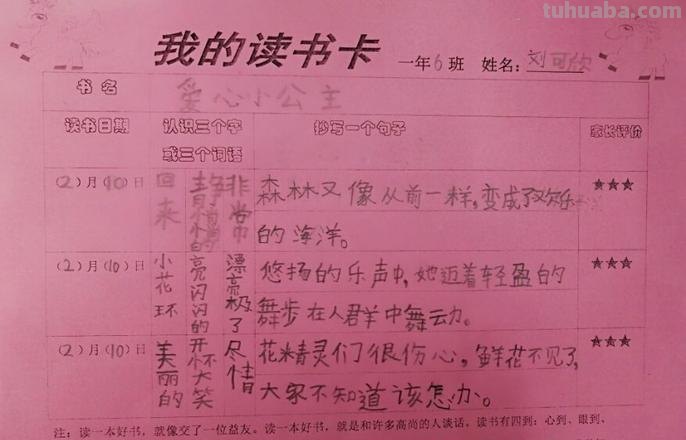 tuhuaba.com
我的读书卡
一年6班 姓名:刘可欣
书名 爱心小公主
读书日期 认识三个字 抄写一个句子 家长评价
或三个词语
(2)月(10)日 回来 静悄悄的 非常 森林又像从前一样,变成了欢乐 ★★★
的海洋。
(2)月(10)日 小花环 亮闪闪的 漂亮极了 悠扬的乐声中,她迈着轻盈的 ★★★
舞步在人群羊中舞云动。
(2)月(10)日 美丽的 开怀大笑 尽情 花精灵们很伤心,鲜花不见了, ★★★
大家不知道该怎办。
注:读一本好书,就像交了一位益友。读一本好书,就是和许多高尚的人谈话,读书有四到:心到、眼到、